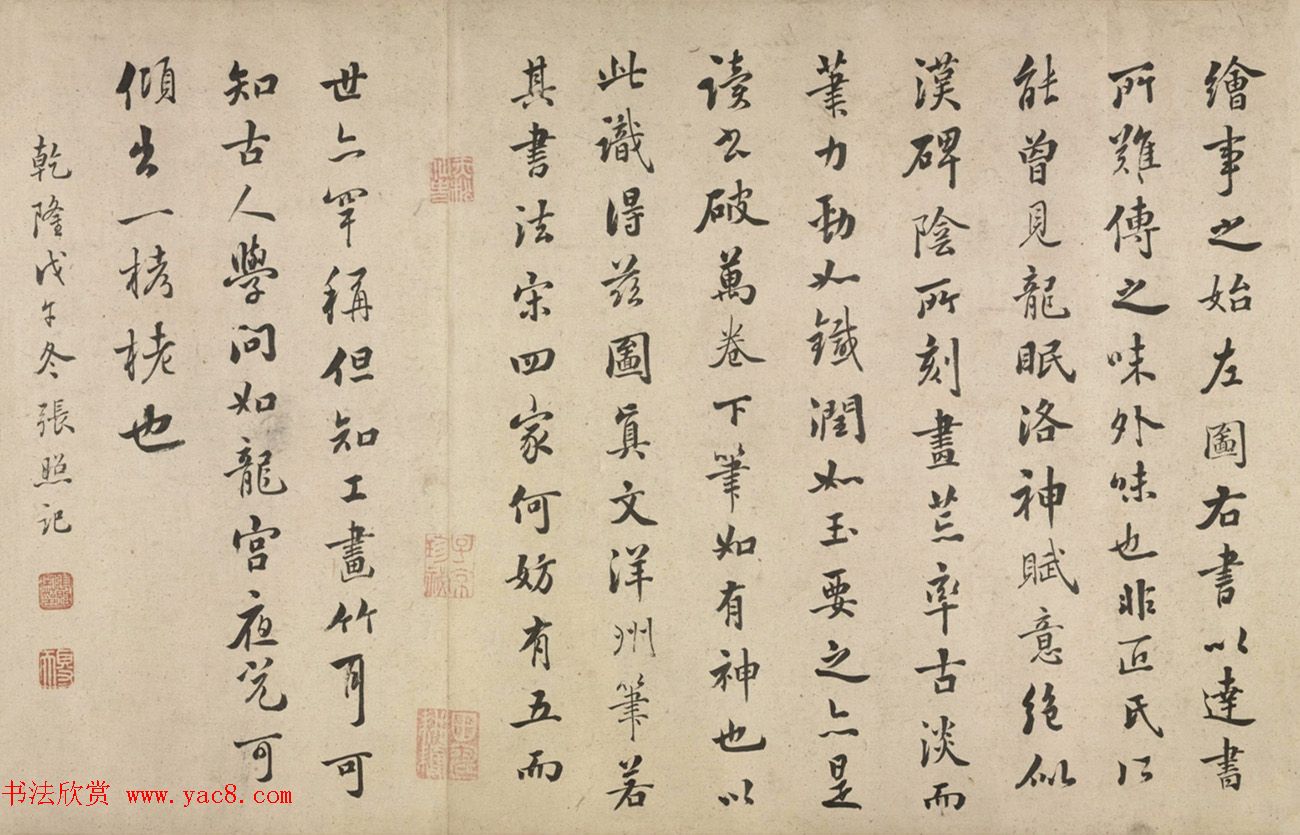 繪事之始左圖右書以達書
所難傳之味外味也非匠氏所
能曾見龍眠洛神賦意絕似
漢碑陰所刻畫荒率古淡而
筆力勁如鐵潤如玉要之亦是
讀書破萬卷下筆如有神也以
此識得茲圖真文洋州筆若
其書法宋四家何妨有五而
世亦罕稱但知工畫竹耳可
知古人學問如龍宮夜光可
傾出一栲栳也
乾隆戊午冬張照記
书法欣赏 www.yac8.com